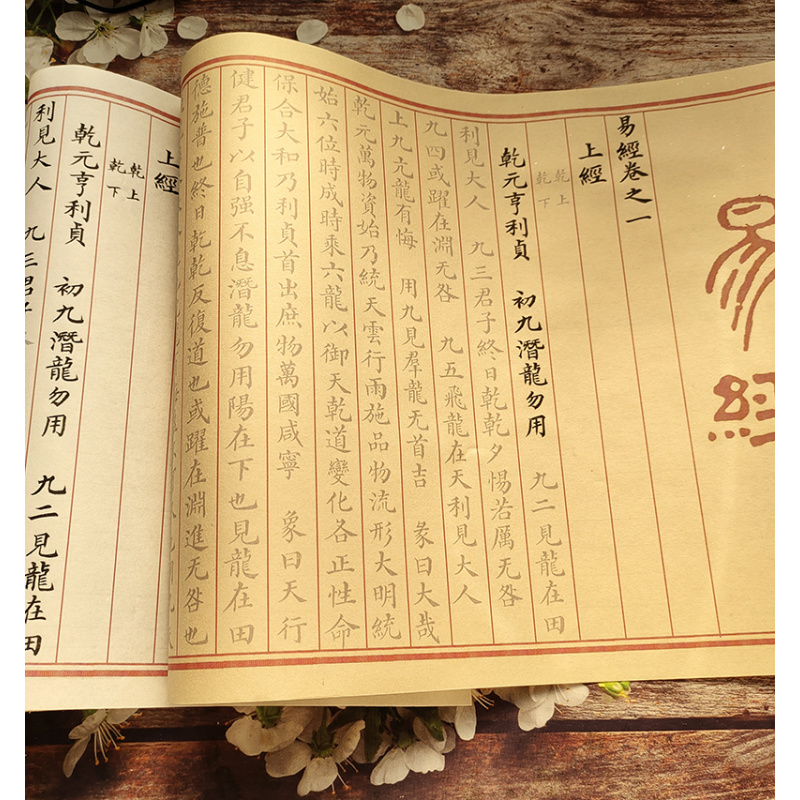 易經
易經卷之一
上經
乾上
乾下
乾元亨利貞 初九潛龍勿用 九二見龍在田
利見大人 九三君子終日乾乾夕惕若厲无咎
九四或躍在淵无咎 九五飛龍在天利見大人
上九亢龍有悔 用九見羣龍无首吉 彖曰大哉
乾元萬物資始乃統天雲行雨施品物流形大明統
始六位時成時乘六龍以御天乾道變化各正性命
保合大和乃利貞首出庶物萬國咸寧 象曰天行
健君子以自强不息潛龍勿用陽在下也見龍在田
德施普也終日乾乾反復道也或躍在淵進无咎也
上經
乾上
乾下
乾元亨利貞 初九潛龍勿用 九二見龍在田
利見大人 九三君